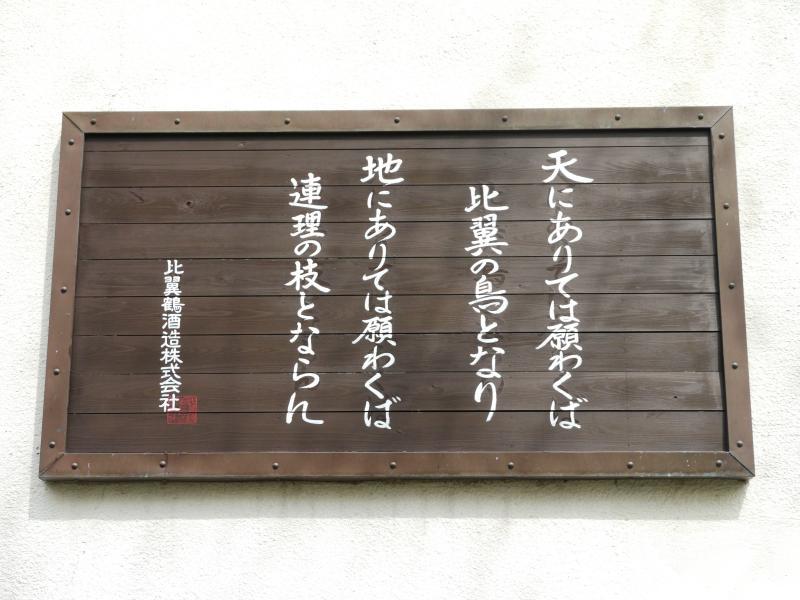 天にありては願わくば
比翼の鳥となり
地にありては願わくば
連理の枝とならん
比翼鶴酒造株式会社